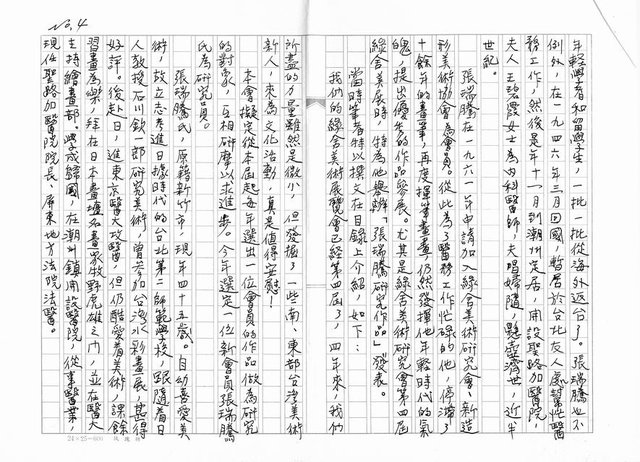 No. 4
年輕學者和留學生，一批一批從海外返台了。張瑞騰也不
例外，在一九四六年三月回國，暫居於台北友人處幫忙醫
務工作，然後是年十一月到潮州定居，開設聖路加醫院，
夫人王碧霞女士為內科醫師，夫唱婦隨，懸壺濟世，近半
世紀。
張瑞騰在一九六一年申請加入綠舍美術研究會、新造
形美術協會為會員。從此為了醫務工作忙碌的他，停滯了
十餘年的畫筆，再度揮筆畫畫，仍然發揮他年輕時代的氣
魄，提出優秀的作品參展。尤其是綠舍美術研究會第四屆
綠舍美展時，特為他舉辦「張瑞騰研究作品」發表。
當時筆者特以撰文在目錄上介紹，如下：
我們的綠舍美術展覽會已經第四屆了，四年來，我們
所盡的力量雖然是微小，但發掘了一些南、東部台灣美術
新人，來為文化活動，真是值得安慰！
本會擬定從本屆起每年選出一位會員的作品做為研究
的對當，互相研摩以求進步。今年選定一位新會員張瑞騰
氏為研究員。
張瑞騰氏，原籍新竹市，現年四十五歲。自幼喜愛美
術，故立志考進日據時代的台北第二師範學校，跟隨着日
人教授石川欽一郎研究美術，曾參加台灣水彩畫展，甚得
好評。後赴日，進東京醫大攻醫，但仍酷愛着美術，課餘
習畫為樂，拜在日本畫壇名畫家牧野虎雄之門，並在醫大
主持繪畫部。學成歸國，在潮州鎮開設醫院，從事醫業，
現任聖路加醫院院長、屏東地方法院法醫。
24×25＝600